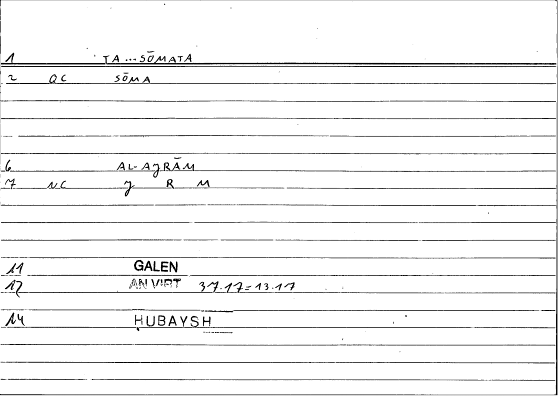 1 TA...SŌMATA
2 QC SŌMA
6 AL-AJRĀM
7 NC J R M
11 GALEN
12 AN VIRT 37.17=13.17
14 HUBAYSH